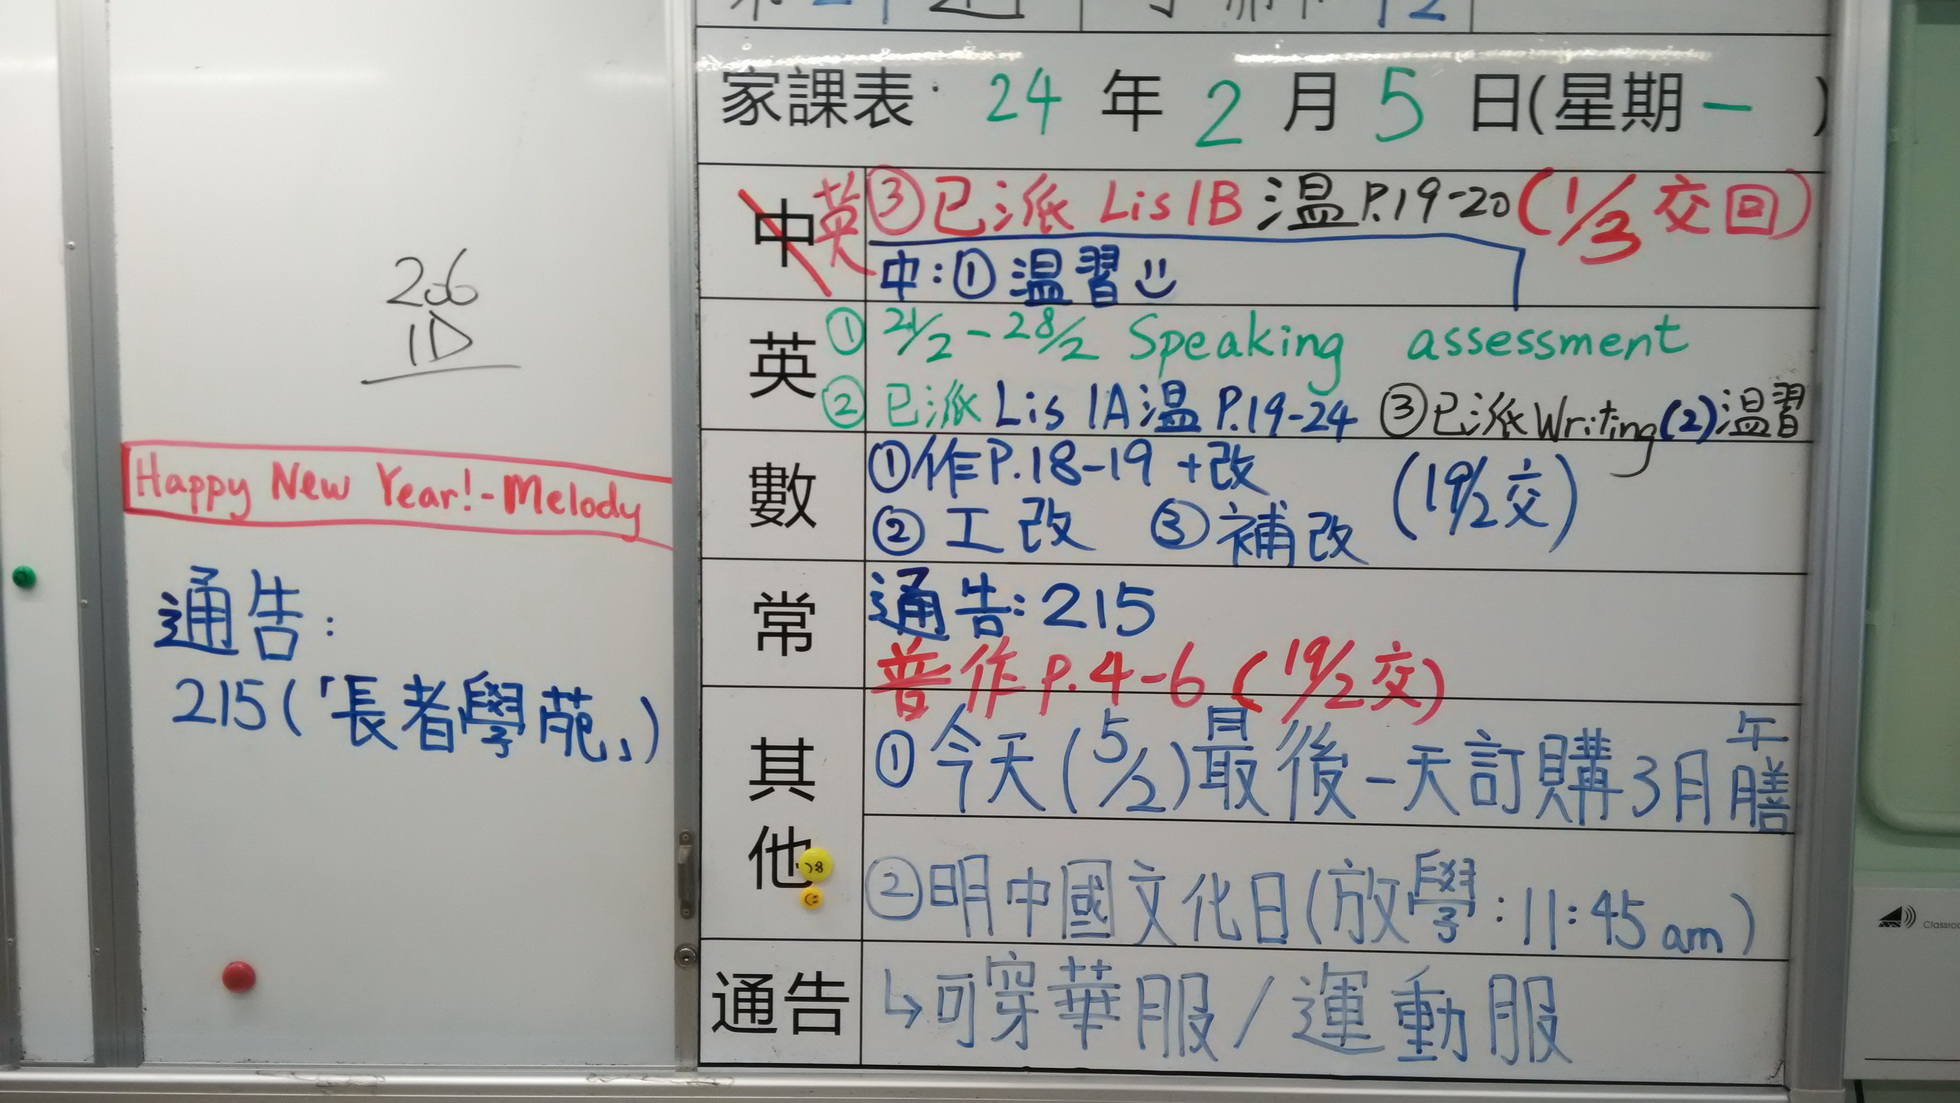 206
1D
Happy New Year!-Melody
通告:
215(「長者學苑」)
家課表 24 年 2 月 5 日(星期一 )
中 英 ③已派 Lis 1B 溫 P.19-20 (1/3 交回)
中:① 溫習
英 ① 21/2-28/2 Speaking assessment
② 已派 Lis 1A 溫 P.19-24 ③已派 Writing(2)溫習
數 ①作P.18-19 +改 (19/2交)
② 工改 ③補改
常 通告:215
普作 P.4-6 (19/2交)
其他 ①今天(5/2)最後一天訂購3月午膳
②明中國文化日(放學:11:45am)
通告 ↳可穿華服/運動服